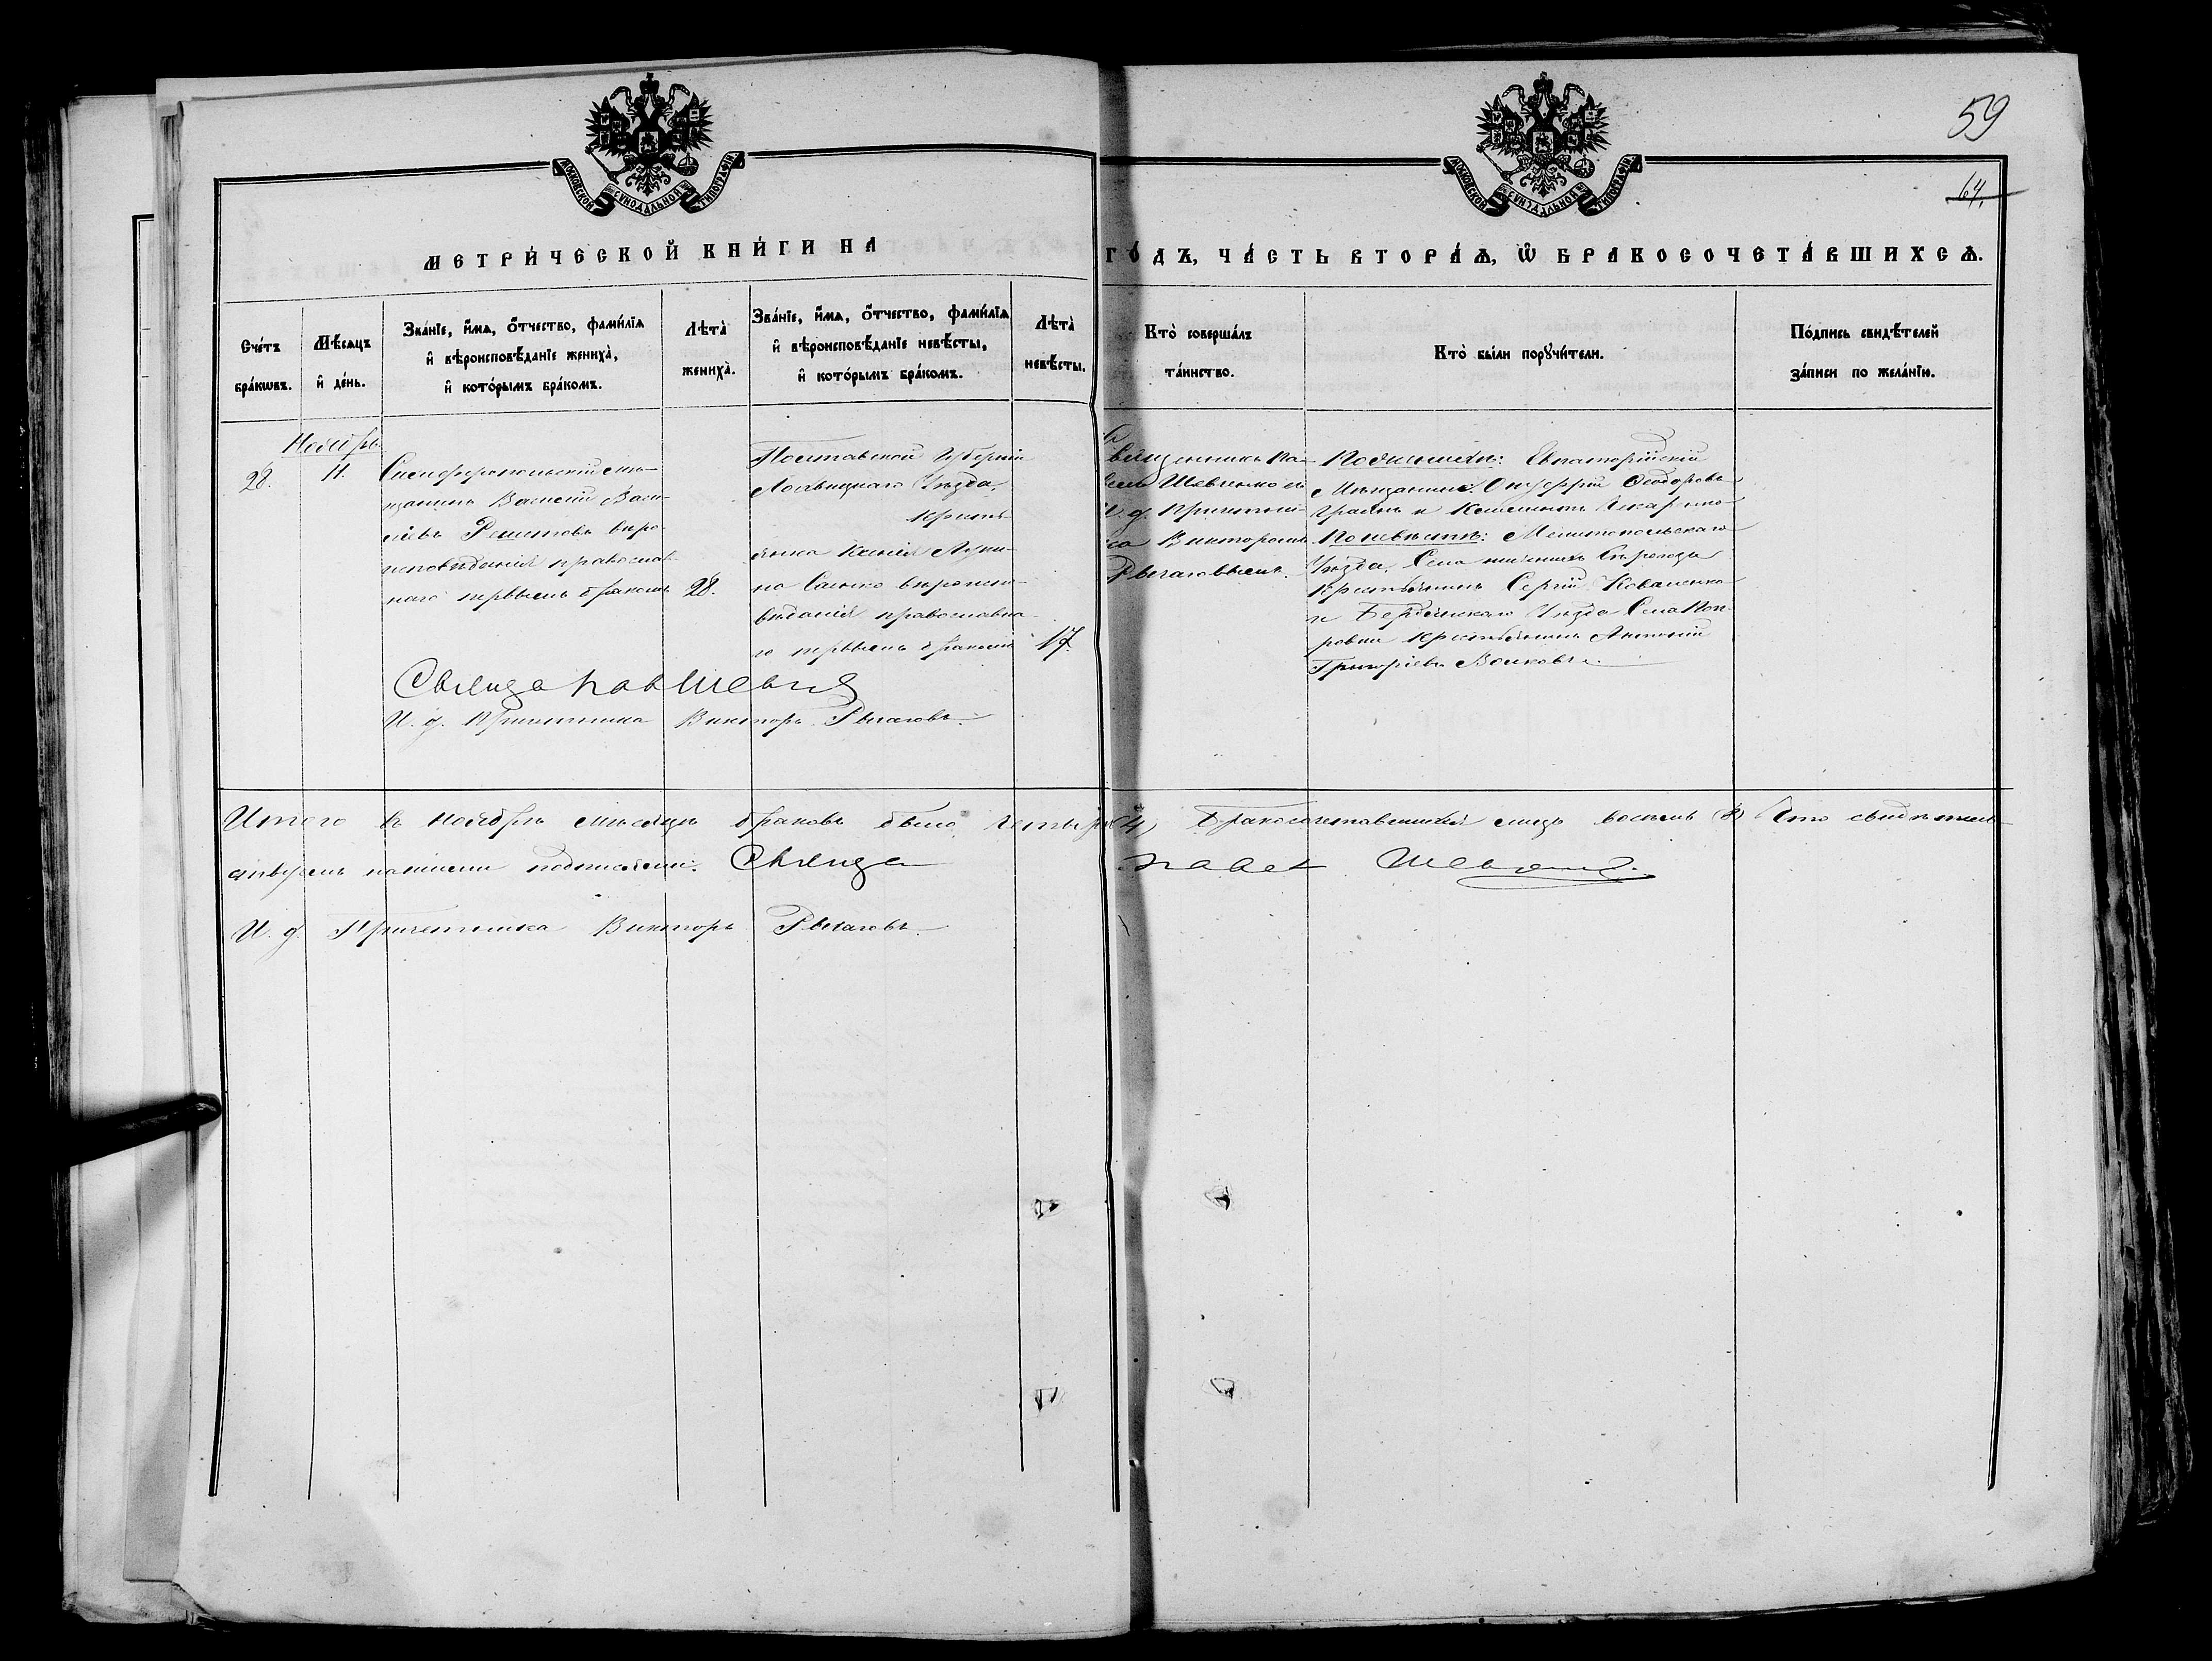 59
64.
МОСКОВСКОЙ СИНОДАЛЬНОЙ ТИПОГРАФІИ
МОСКОВСКОЙ СИНОДАЛЬНОЙ ТИПОГРАФІИ
МЕТРИ́ЧЕСКОЙ КНИ́ГИ НА
ГО́ДЪ, ЧА́СТЬ ВТОРА́Ѧ, Ѡ҆ БРАКОСОЧЕТА́ВШИХСѦ.
Сче́тъ
бра́кѡвъ.
Мѣ́сѧцъ
и҆ де́нь.
Зва́нїе, и҆́мѧ, ѻ҆́тчество, фамі́лїѧ
и҆ вѣроисповѣ́данїе жениха̀,
и҆ кото́рымъ бра́комъ.
Лѣта̀
жениха̀.
Зва́нїе, и҆́мѧ, ѻ҆́тчество, фамі́лїѧ
и҆ вѣроисповѣ́данїе невѣ́сты,
и҆ кото́рымъ бра́комъ.
Лѣта̀
невѣ́сты.
Кто̀ соверша́лъ
та́инство.
Кто̀ бы́ли порꙋчи́тели.
По́дпись свидѣ́телей
за́писи по жела́нїю.
Ноябрь
28.
11.
Симферопольскій мѣ-
щанинъ Василій Васи-
ліевъ Решетовъ вѣро-
исповѣданія православ-
наго первымъ бракомъ
28.
Полтавской Губерніи
Лохвицкаго Уѣзда,
кресть-
янка Ксенія
вѣроиспо-
вѣданія православна-
го первымъ бракомъ
17.
Священникъ Па-
велъ Шевченко съ
И. д. Причетни-
ка Викторомъ
Рыгаловымъ.
По женихѣ: Евпаторійскій
Мѣщанинъ Онуфрій Феодоровъ
По невѣстѣ: Мелитопольскаго
Уѣзда, Села
Крестьянинъ Сергій Коваленко
и Бердянскаго Уѣзда Села Пок-
ровки Крестьянинъ Антоній
Григоріевъ Волковъ.
Священ Пав Шевчен
И. д. Причетника Викторъ Рыгаловъ.
Итого въ Ноябрѣ мѣсяцѣ браковъ было четыре (4) Бракосочетавшихся лицъ восемь (8) Что свидѣтель-
ствуемъ нашими подписями: Священ Павел Шевченко.
И. д. Причетника Викторъ Рыгаловъ.